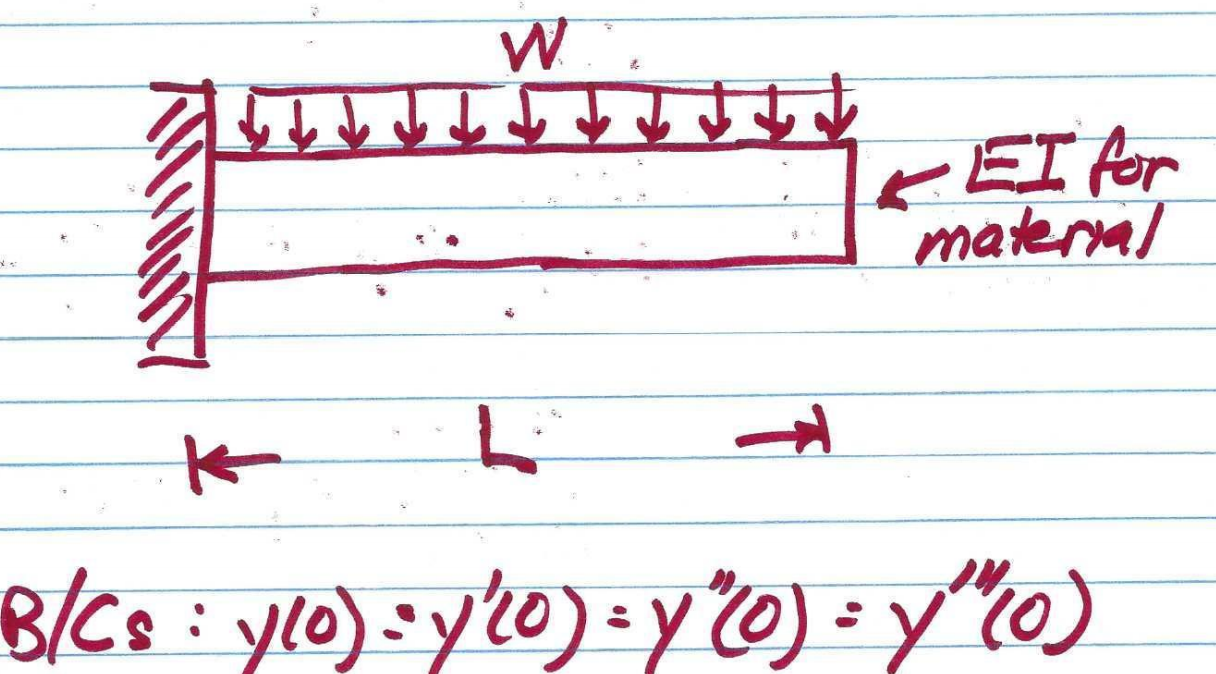 W
EI for
material
L
B/Cs : y(0) = y'(0) = y"(0) = y'''(0)